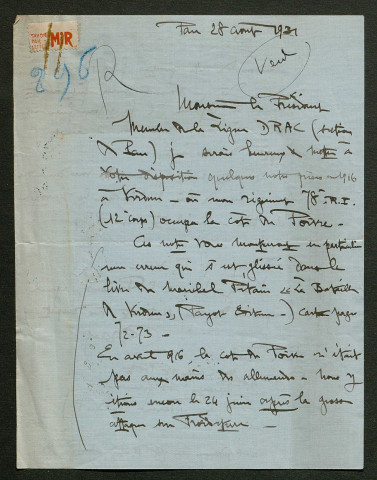 MIR
246 R
Pau 28 août 1931
Monsieur le Président
Membre de la Ligue DRAC (section
de Pau) je serais heureux de mettre à
votre disposition quelques notes prises 1916
à Verdun - où mon régiment 78e R.I.
(12e corps) occupa la cote du Poivre -
Ces notes vous montreront en particulier
une erreur qui s'est glissée dans le
livre du Maréchal Pétain "La Bataille
de Verdun", (Payot Editeur -) carte page
72-73 -
En avril 916 - la cote du Poivre n'était
pas aux mains des allemands - Nous y
étions encore le 24 juin après la grosse
attaque sur